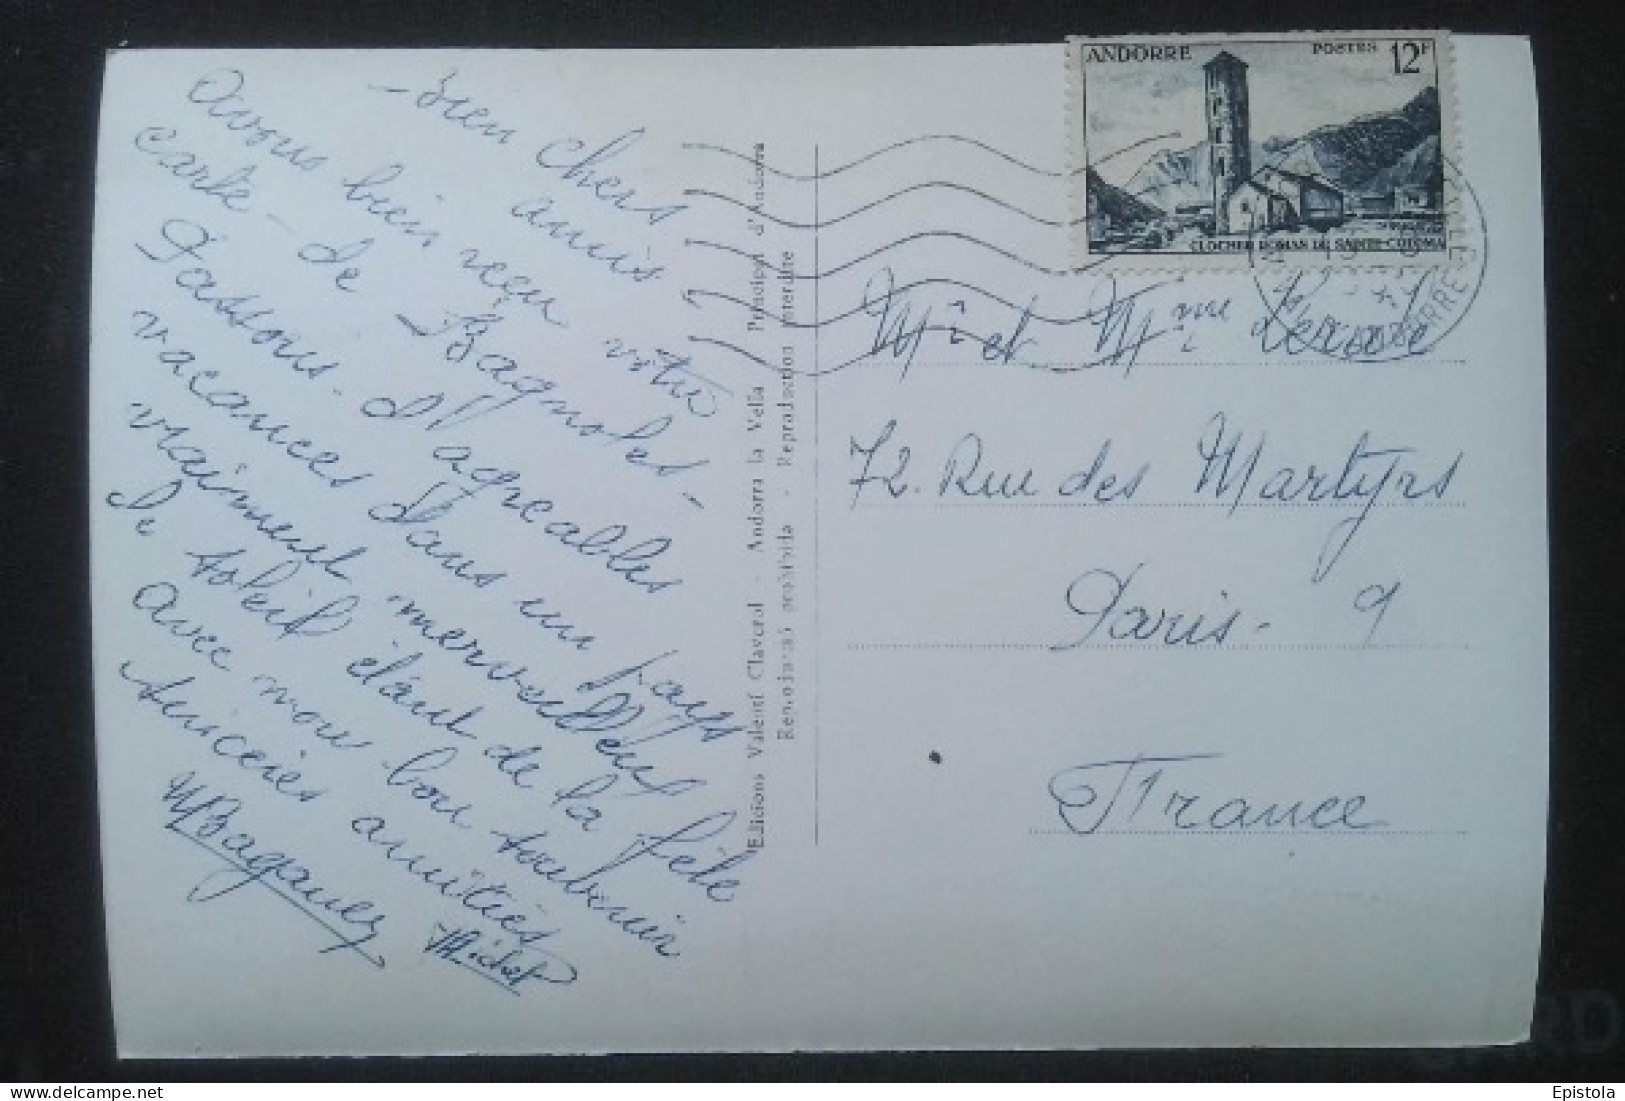 - Bien chers amis
avons bien reçu votre
carte - de Bagnoles -
Passons - d'agréables
vacances dans un pays
vraiment merveilleux
le soleil étant de la fête
avec mon bon souvenir
sincères amitiés
Michel
Edicions Valentí Claverol - Andorra la Vella Principat d'Andorra
Reproducció prohibida - Reproduction interdite
ANDORRE POSTES 12F
CLOCHER ROMAN DE SAINTE-COLOMA
Mr et Mme
72. Rue des Martyrs
Paris - 9
France
Epistola